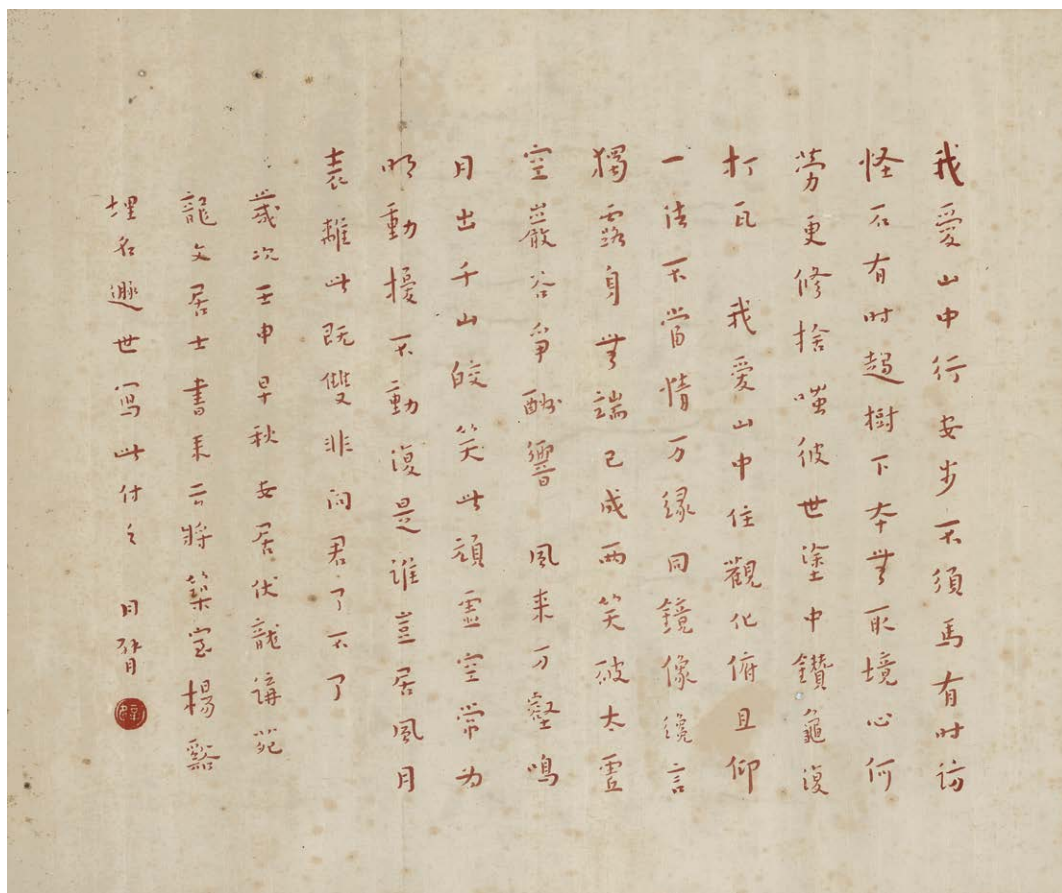 我愛山中行安步不須馬有时訪
怪石有时趨樹下本無取境心何
勞更修捨嗤彼世塗中鑽龜復
打瓦 我愛山中住觀化俯且仰
一法不當情万緣同鏡像纔言
獨露身無端已成兩笑破太虛
空巖谷爭酬響 風来万壑鳴
月出千山皎笑此頑虛空常为
明動擾不動復是誰豈居風月
表離此既雙非问君了不了
歲次壬申早秋安居伏龍講苑
龍文居士書来云將築室楊谿
埋名遯世寫此付之 月臂